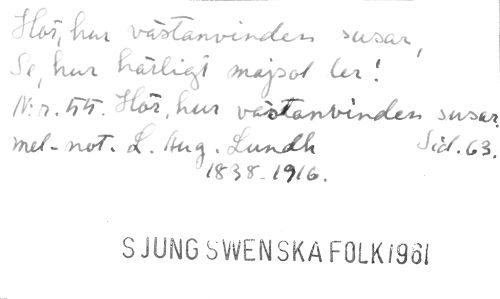 Hör, hur västanvinden susar,
Se, hur härligt majsol ler!
N:r. 55. Hör, hur västanvinden susar.
mel-not. L. Aug. Lundh Sid. 63.
1838-1916.
SJUNG SWENSKA FOLK 1961